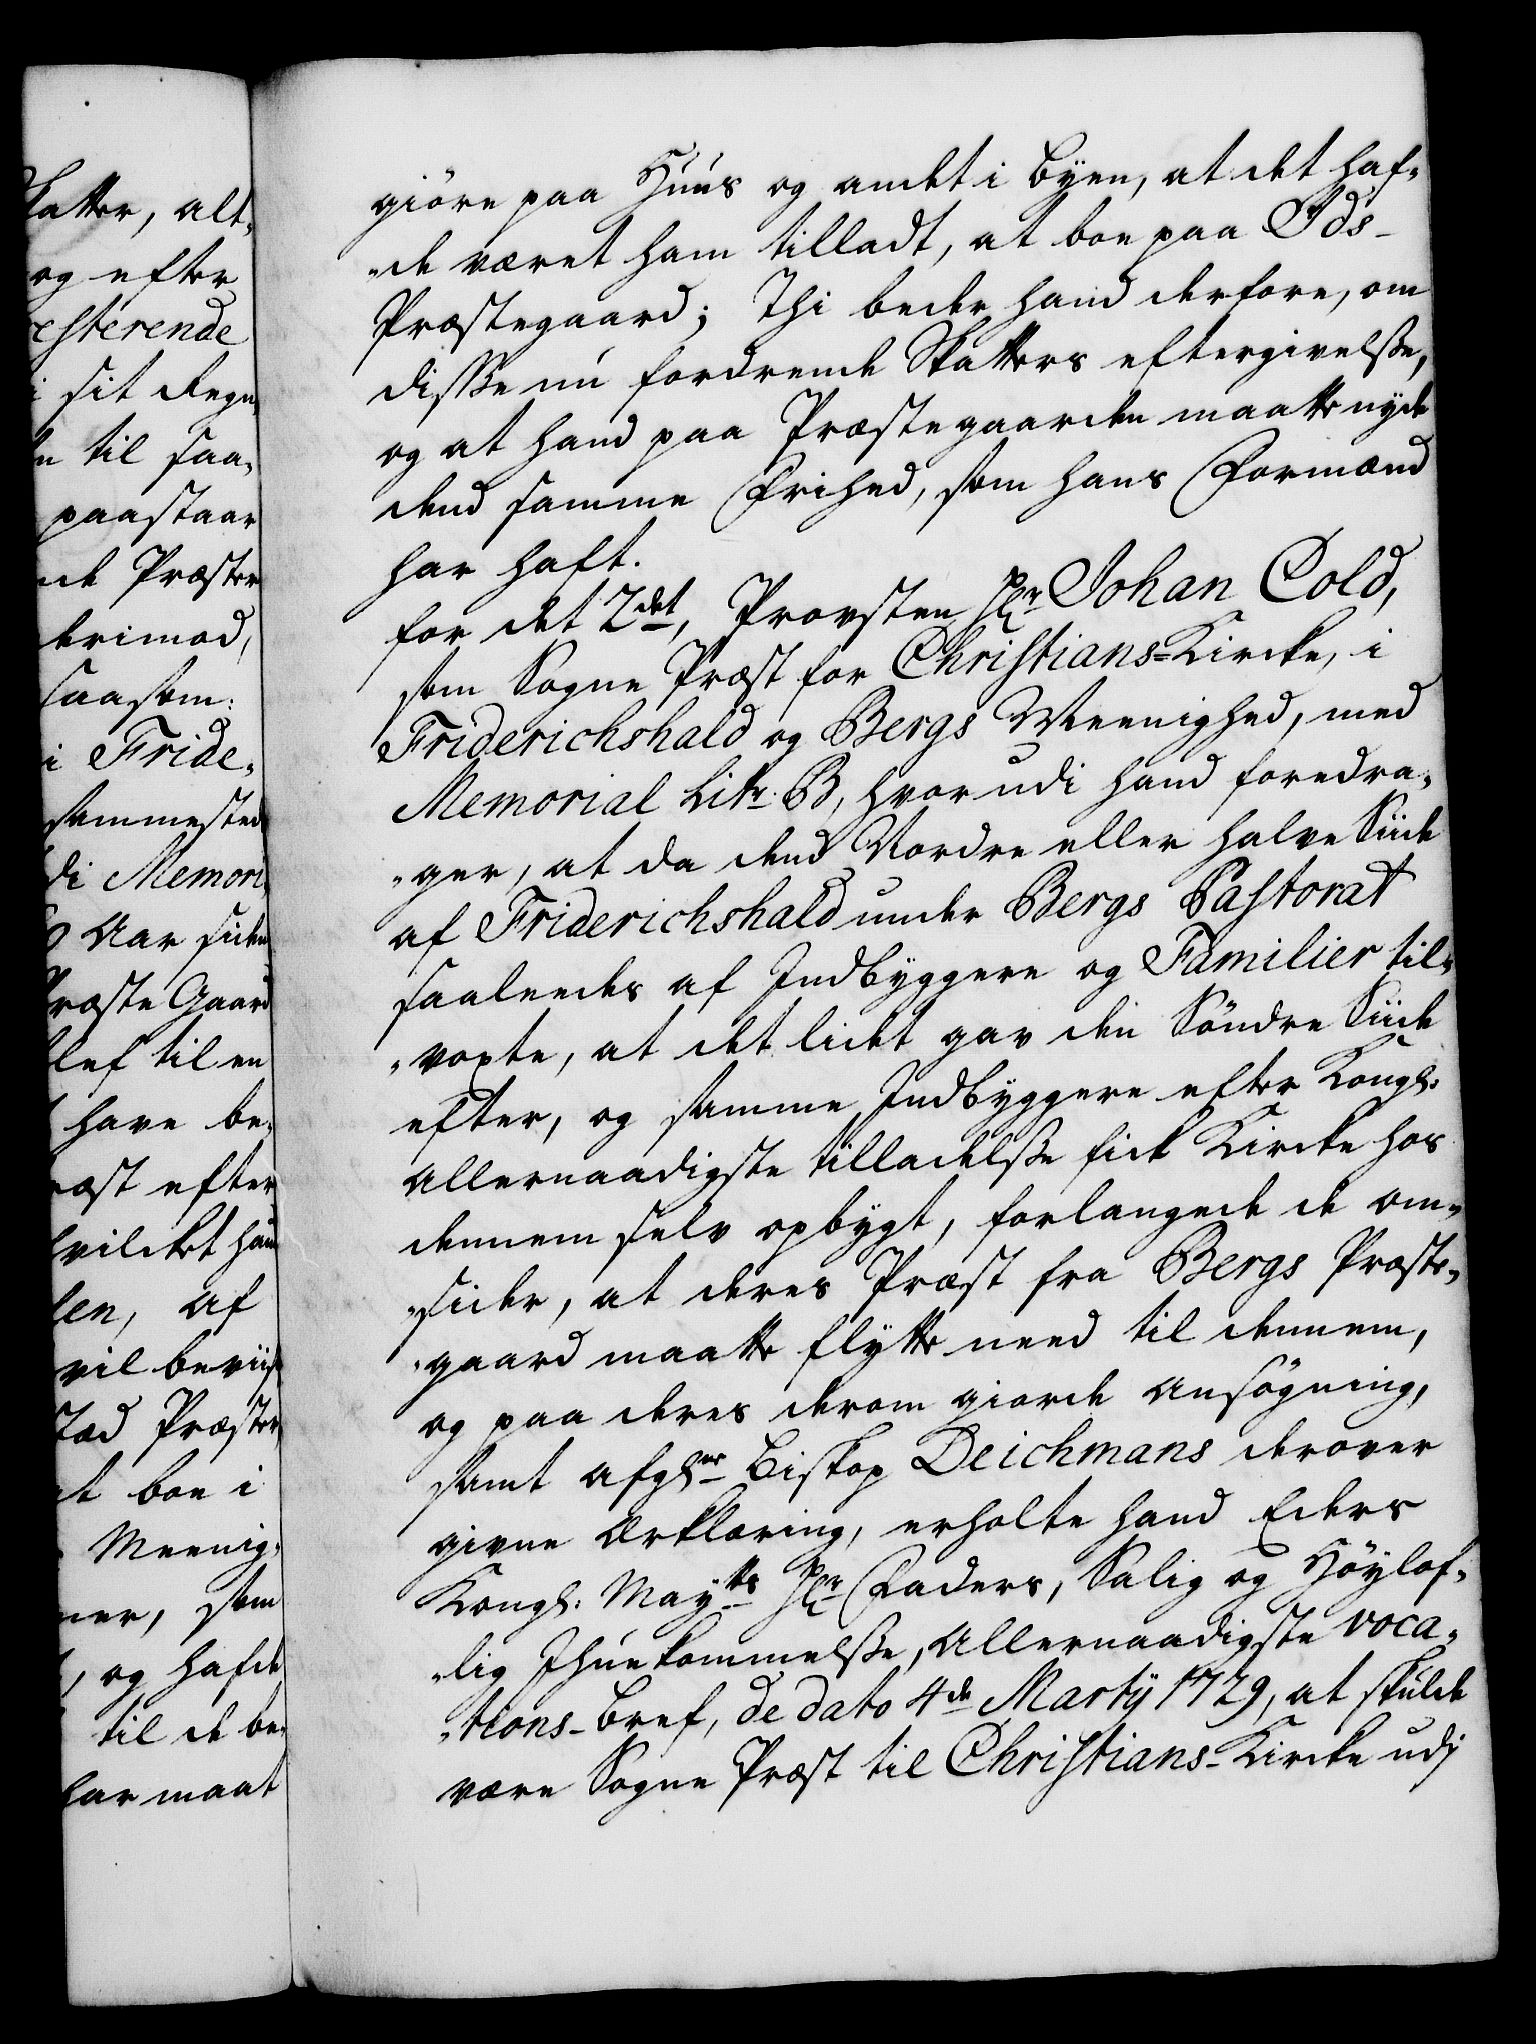 katter, alt„
og efter
esterende
i sit Regn„
n til saa„
paastaar
de Præster
erimod,
saasom:
i Fride„
sammested
di Memori„
0 Aar siden
Præste Gaard
lef til en
have be„
ræst efter
hvilcket hand
len, af
vil beviis
Præster
at boe i
Meenig„
ner, som
, og hafde
til de be„
har maat
giöre paa Huus og andet i Byen, at det haf„
„de været ham tilladt, at boe paa Ids-
Præstegaard; Thi beder hand derfore, om
disse nu fordrende Skatters eftergivelsse,
og at hand paa Præstegaarden maatte nyde
dend samme Frihed, som hans Formænd
har haft.
for det 2det, Provsten Hr Johan Cold,
som Sogne Præst for Christians=Kircke, i
Friderichshald og Bergs Meenighed, med
Memorial Litr. B, hvorudi hand foredra„
„ger, at da dend Nordre eller halve Siide
af Friderichshald under Bergs Pastorat
saaleedes af Indbyggere og Familier til„
„voxte, at det lidet gav den Söndre Siide
efter, og samme Indbyggere efter Kongl:
allernaadigste tilladelsse fick Kircke hos
dennem selv opbygt, forlangede de om„
„sider, at deres Præst fra Bergs Præste„
„gaard maatte flytte need til dennem,
og paa deres derom giorde ansögning,
samt afgl:ne Biskop Deichmans derover
givne Erklæring, erholte hand Eders
Kongl: Maytts Hr Faders, Salig og Höylof„
„lig Ihuekommelsse, Allernaadigste voca„
„tions-Bref, de dato 4de Martij 1729, at skulde
være Sogne Præst til Christians-Kircke udj